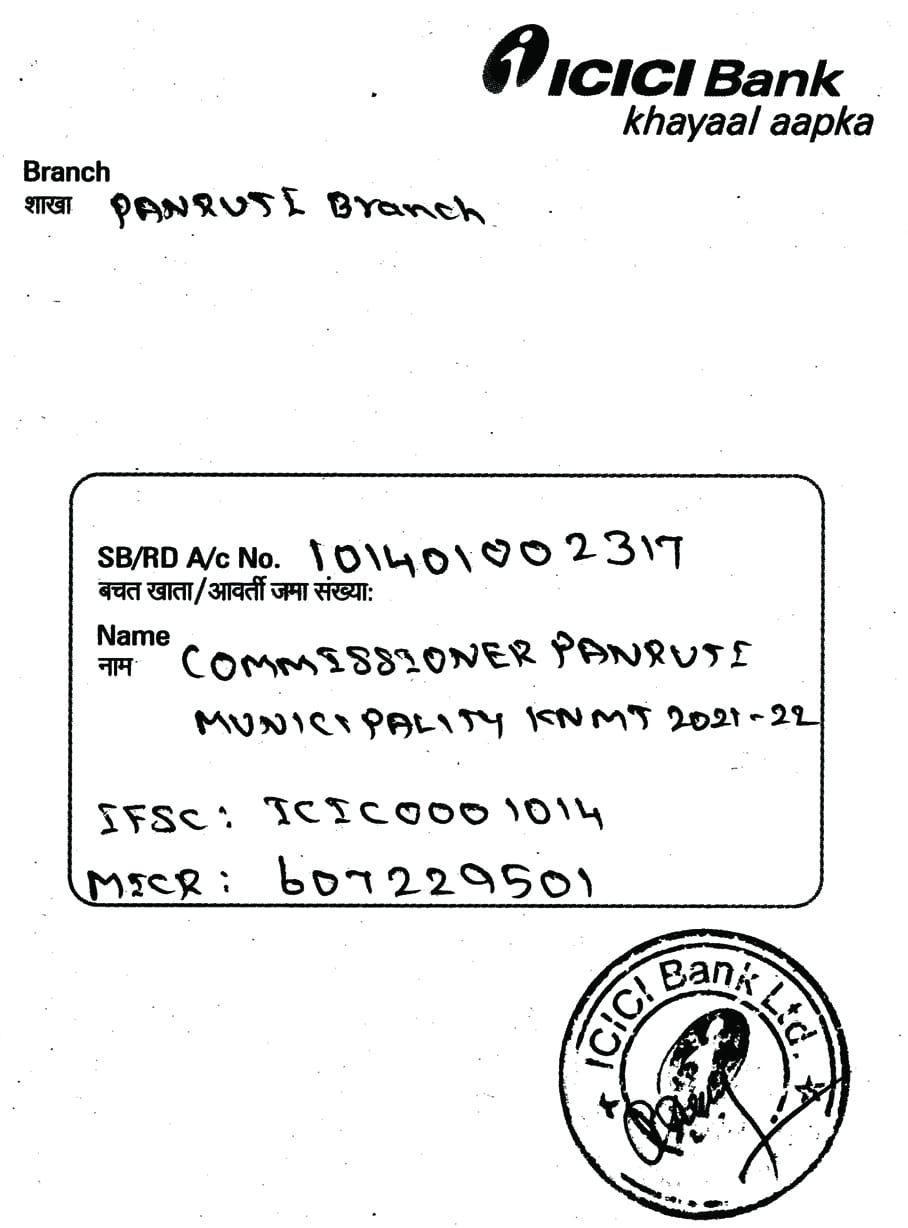 ICICI Bank
khayaal aapka
Branch
शाखा PANRUTI Branch
SB/RD A/c No. 101401002317
बचत खाता/आवर्ती जमा संख्या:
Name
नाम COMMISSIONER PANRUTI
MUNICIPALITY KNMT 2021-22
IFSC: ICIC0001014
MICR: 607229501
ICICI Bank Ltd.